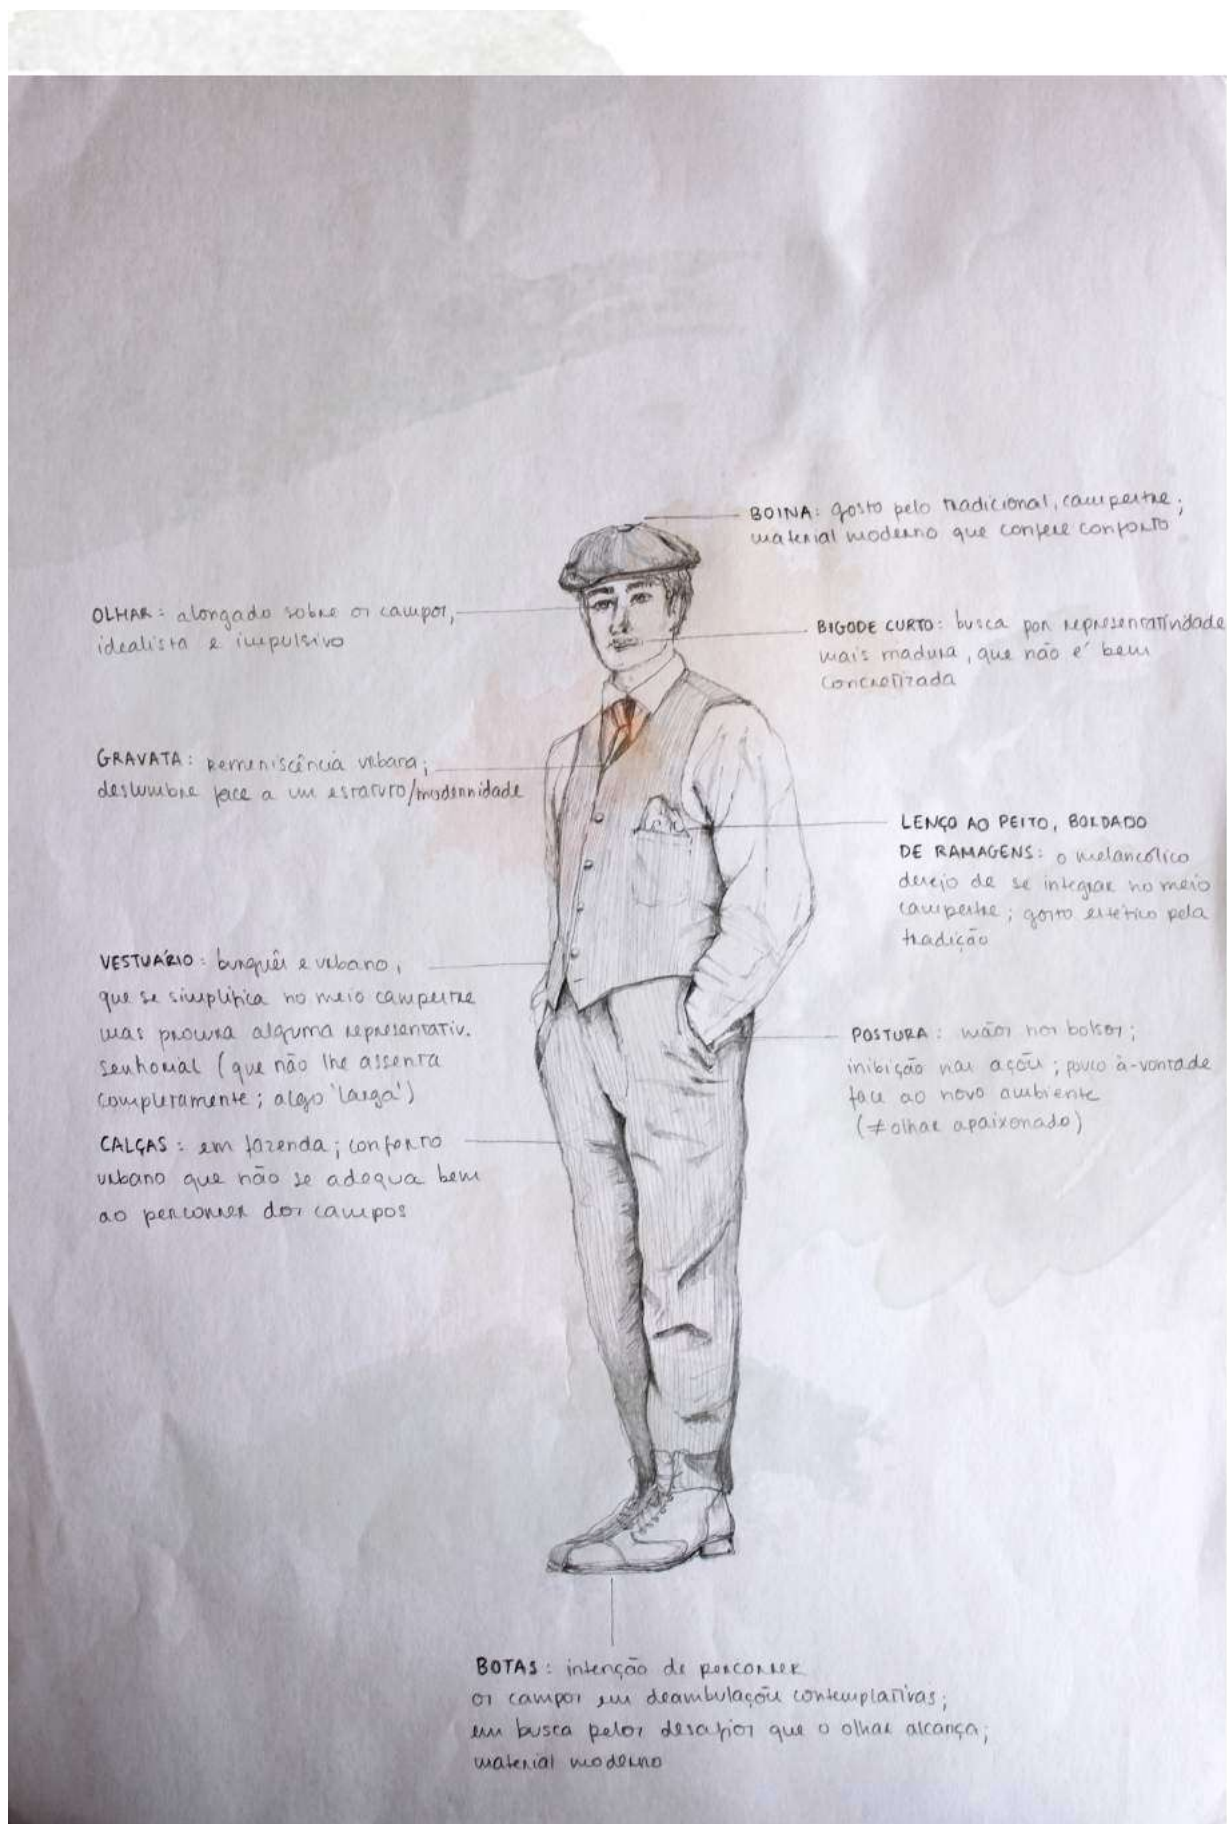 BOINA: gosto pelo tradicional, campestre;
material moderno que confere conforto
OLHAR: alongado sobre os campos,
idealista e impulsivo
BIGODE CURTO: busca por representatividade
mais madura, que não é bem
concretizada
GRAVATA: reminiscência urbana;
deslumbre face a um estatuto/modernidade
LENÇO AO PEITO, BORDADO
DE RAMAGENS: o melancólico
desejo de se integrar no meio
campestre; gosto estético pela
tradição
VESTUÁRIO: burguês e urbano,
que se simplifica no meio campestre
mas procura alguma representativ.
senhorial (que não lhe assenta
completamente; algo 'larga')
POSTURA: mãos nos bolsos;
inibição nas ações; pouco à-vontade
face ao novo ambiente
(≠olhar apaixonado)
CALÇAS: em fazenda; conforto
urbano que não se adequa bem
ao percorrer dos campos
BOTAS: intenção de percorrer
os campos em deambulações contemplativas;
em busca pelos desafios que o olhar alcança;
material moderno